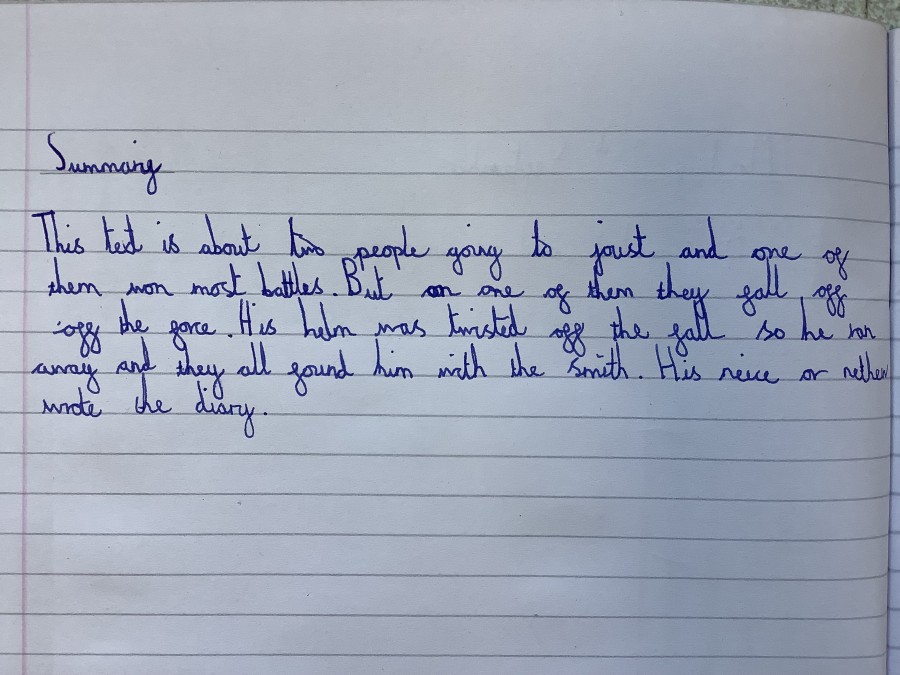 Summary
This text is about two people going to joust and one of
them won most battles. But on one of them they fall off
off the force. His helm was twisted off the fall so he ran
away and they all found him with the smith. His neice or nethew
wrote the diary.